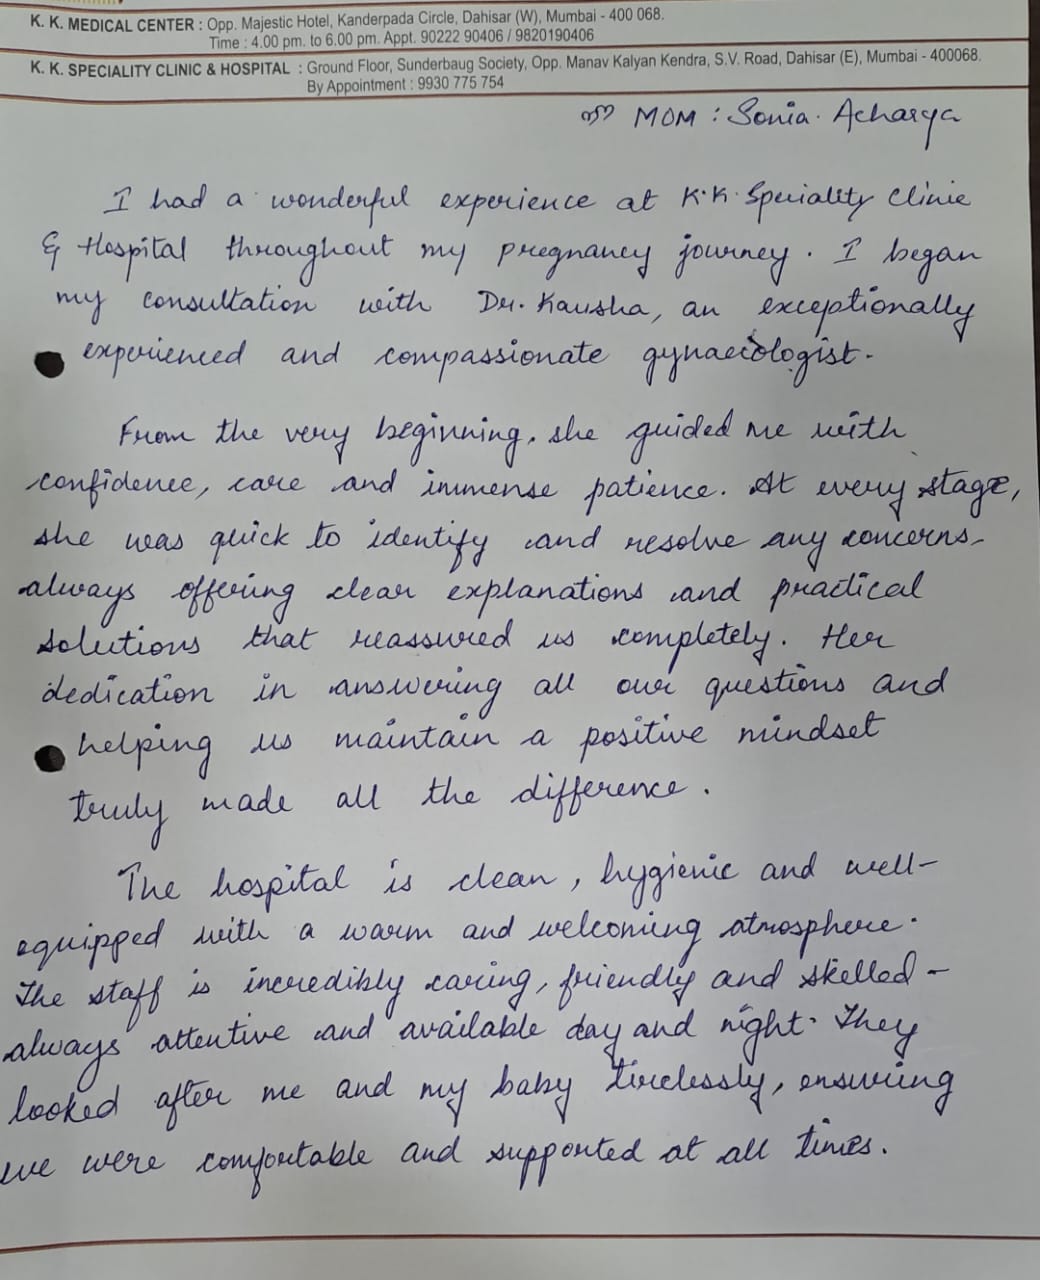 K. K. MEDICAL CENTER : Opp. Majestic Hotel, Kanderpada Circle, Dahisar (W), Mumbai - 400 068.
Time : 4.00 pm. to 6.00 pm. Appt. 90222 90406 / 9820190406
K. K. SPECIALITY CLINIC & HOSPITAL : Ground Floor, Sunderbaug Society, Opp. Manav Kalyan Kendra, S.V. Road, Dahisar (E), Mumbai - 400068.
By Appointment : 9930 775 754
MOM : Sonia Acharya
I had a wonderful experience at K.K. Speciality Clinic
& Hospital throughout my pregnancy journey. I began
my consultation with Dr. Kausha, an exceptionally
experienced and compassionate gynaecologist.
From the very beginning, she guided me with
confidence, care and immense patience. At every stage,
she was quick to identify and resolve any concerns-
always offering clear explanations and practical
solutions that reassured us completely. Her
dedication in answering all our questions and
helping us maintain a positive mindset
truly made all the difference.
The hospital is clean, hygienic and well-
equipped with a warm and welcoming atmosphere.
The staff is incredibly caring, friendly and skilled -
always attentive and available day and night. They
looked after me and my baby tirelessly, ensuring
we were comfortable and supported at all times.